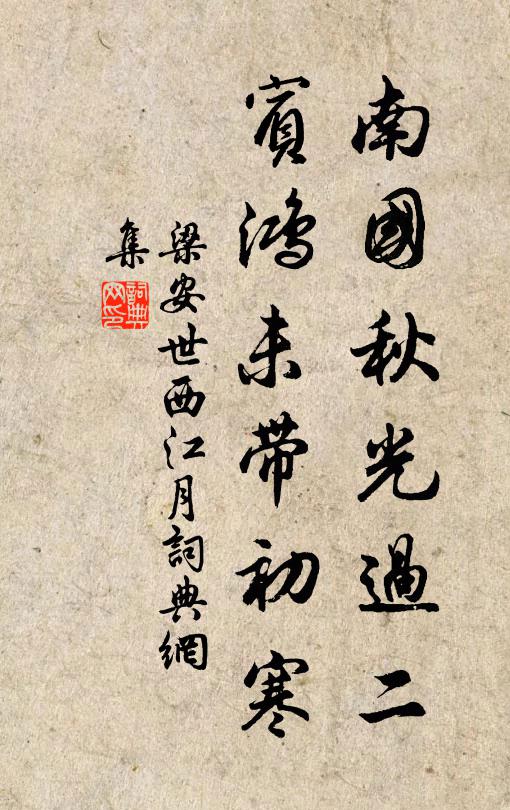 南國秋光過二
賓鴻未帶初寒
梁安世西江月詞典網
集
詞典
网印